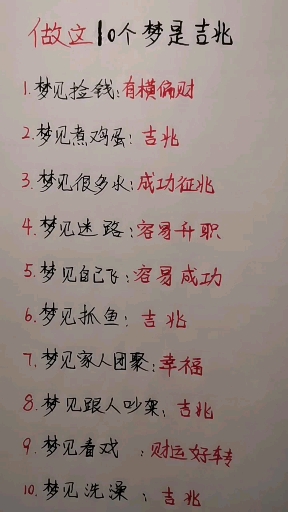 做这10个梦是吉兆
1.梦见捡钱:有横偏财
2.梦见煮鸡蛋:吉兆
3.梦见很多水:成功征兆
4.梦见迷路:容易升职
5.梦见自己飞:容易成功
6.梦见抓鱼:吉兆
7.梦见家人团聚:幸福
8.梦见跟人吵架:吉兆
9.梦见看戏:财运好转
10.梦见洗澡:吉兆